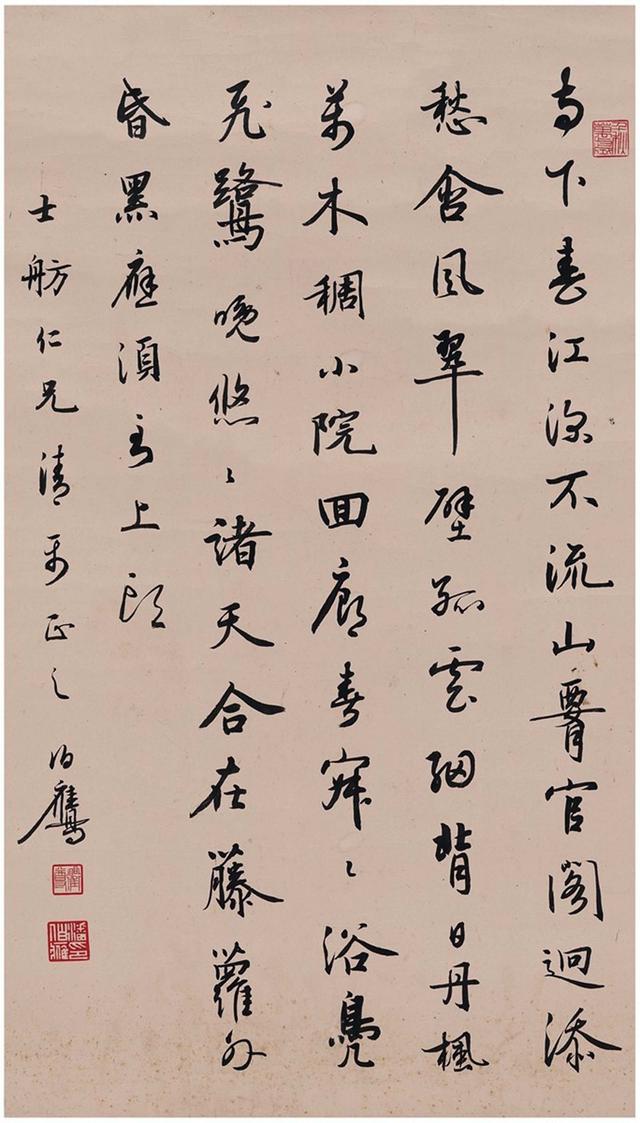 寺下春江深不流山腰官閣迥添
愁含風翠壁孤雲細背日丹楓
萬木稠小院回廊春寂〻浴鳧
飛鷺晚悠〻諸天合在藤蘿外
昏黑應須到上頭
士舫仁兄清屬正之 伯鷹
潘印伯鷹